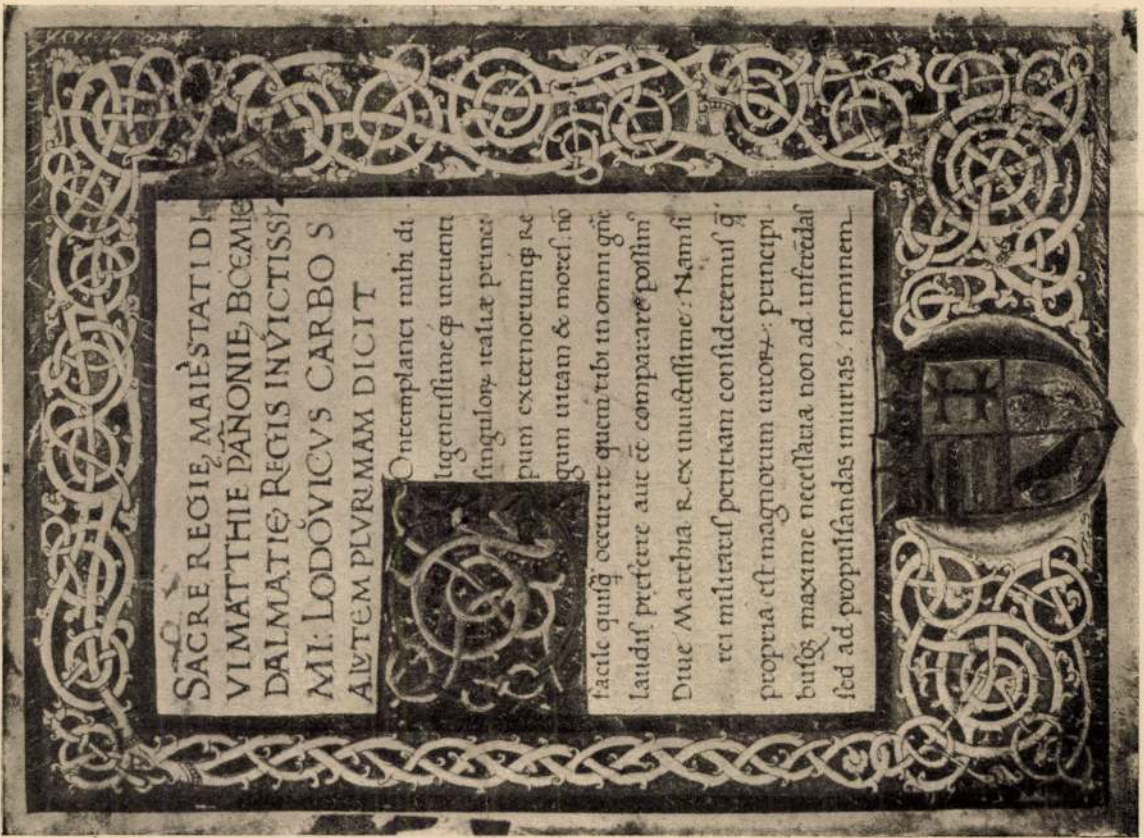 SACRE REGIE, MAIESTATI DI
VI MATTHIE PAÑONIE, BOEMIE
DALMATIE REGIS INVICTISSI
MI: LODOVICVS CARBO S
ALVTEM PLVRIMAM DICIT
Ontemplanti mihi di
ligentissime q̃ intuenti
singuloꝝ italiæ princi
pum externorumq; Re
gum uitam & mores. nõ
facile quisq̃ occurrit quem tibi in omni gñe
laudis preferre aut et̃ comparare possim
Diue Matthia Rex inuictissime: Nam si
rei militaris peritiam consideremus q̃
propria est magnorum uiroꝝ: principi
busq; maxime necessaria non ad inferẽdas
sed ad propulsandas iniurias. neminem